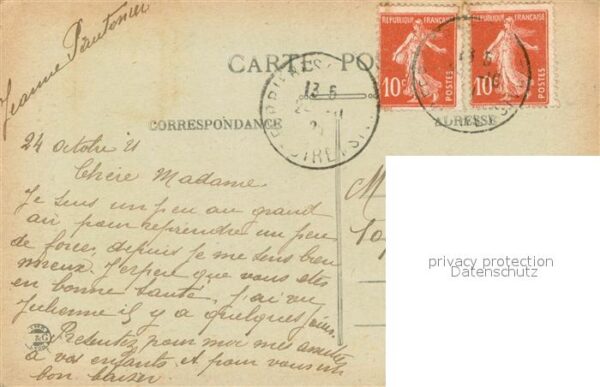 Jeanne Pautonier
CARTE POS
REPUBLIQUE FRANÇAISE
10c
POSTES
REPUBLIQUE FRANÇAISE
10c
POSTES
13 5
CORRESPONDANCE
ADRESSE
24 Octobre 21
Chère Madame
Je suis un peu au grand
air pour reprendre un peu
de force, depuis je me sens bien
mieux. J'espère que vous êtes
en bonne santé, j'ai vu
Julienne il y a quelques jours.
Présentez pour moi mes amitiés
à vos enfants et pour vous un
bon baiser
M
privacy protection
Datenschutz